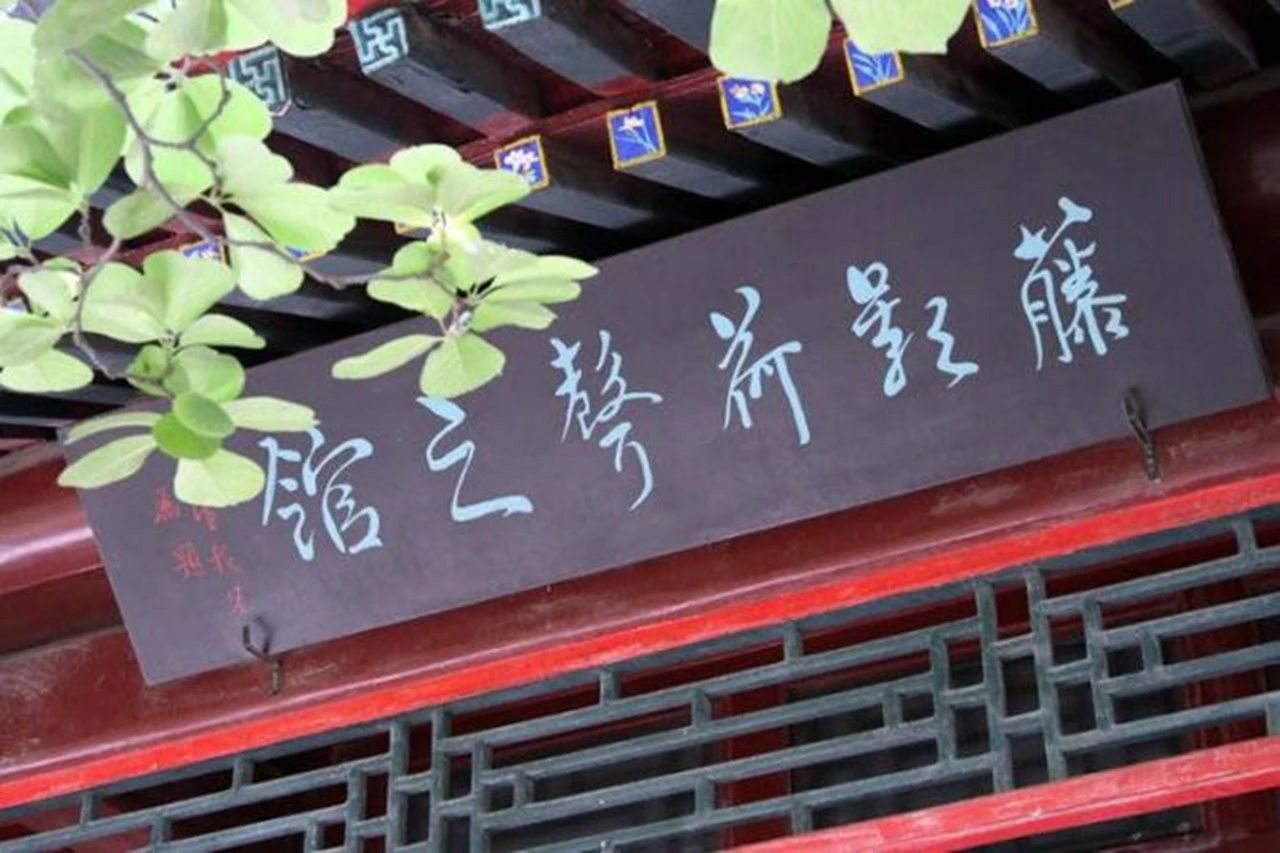 藤影荷聲之館